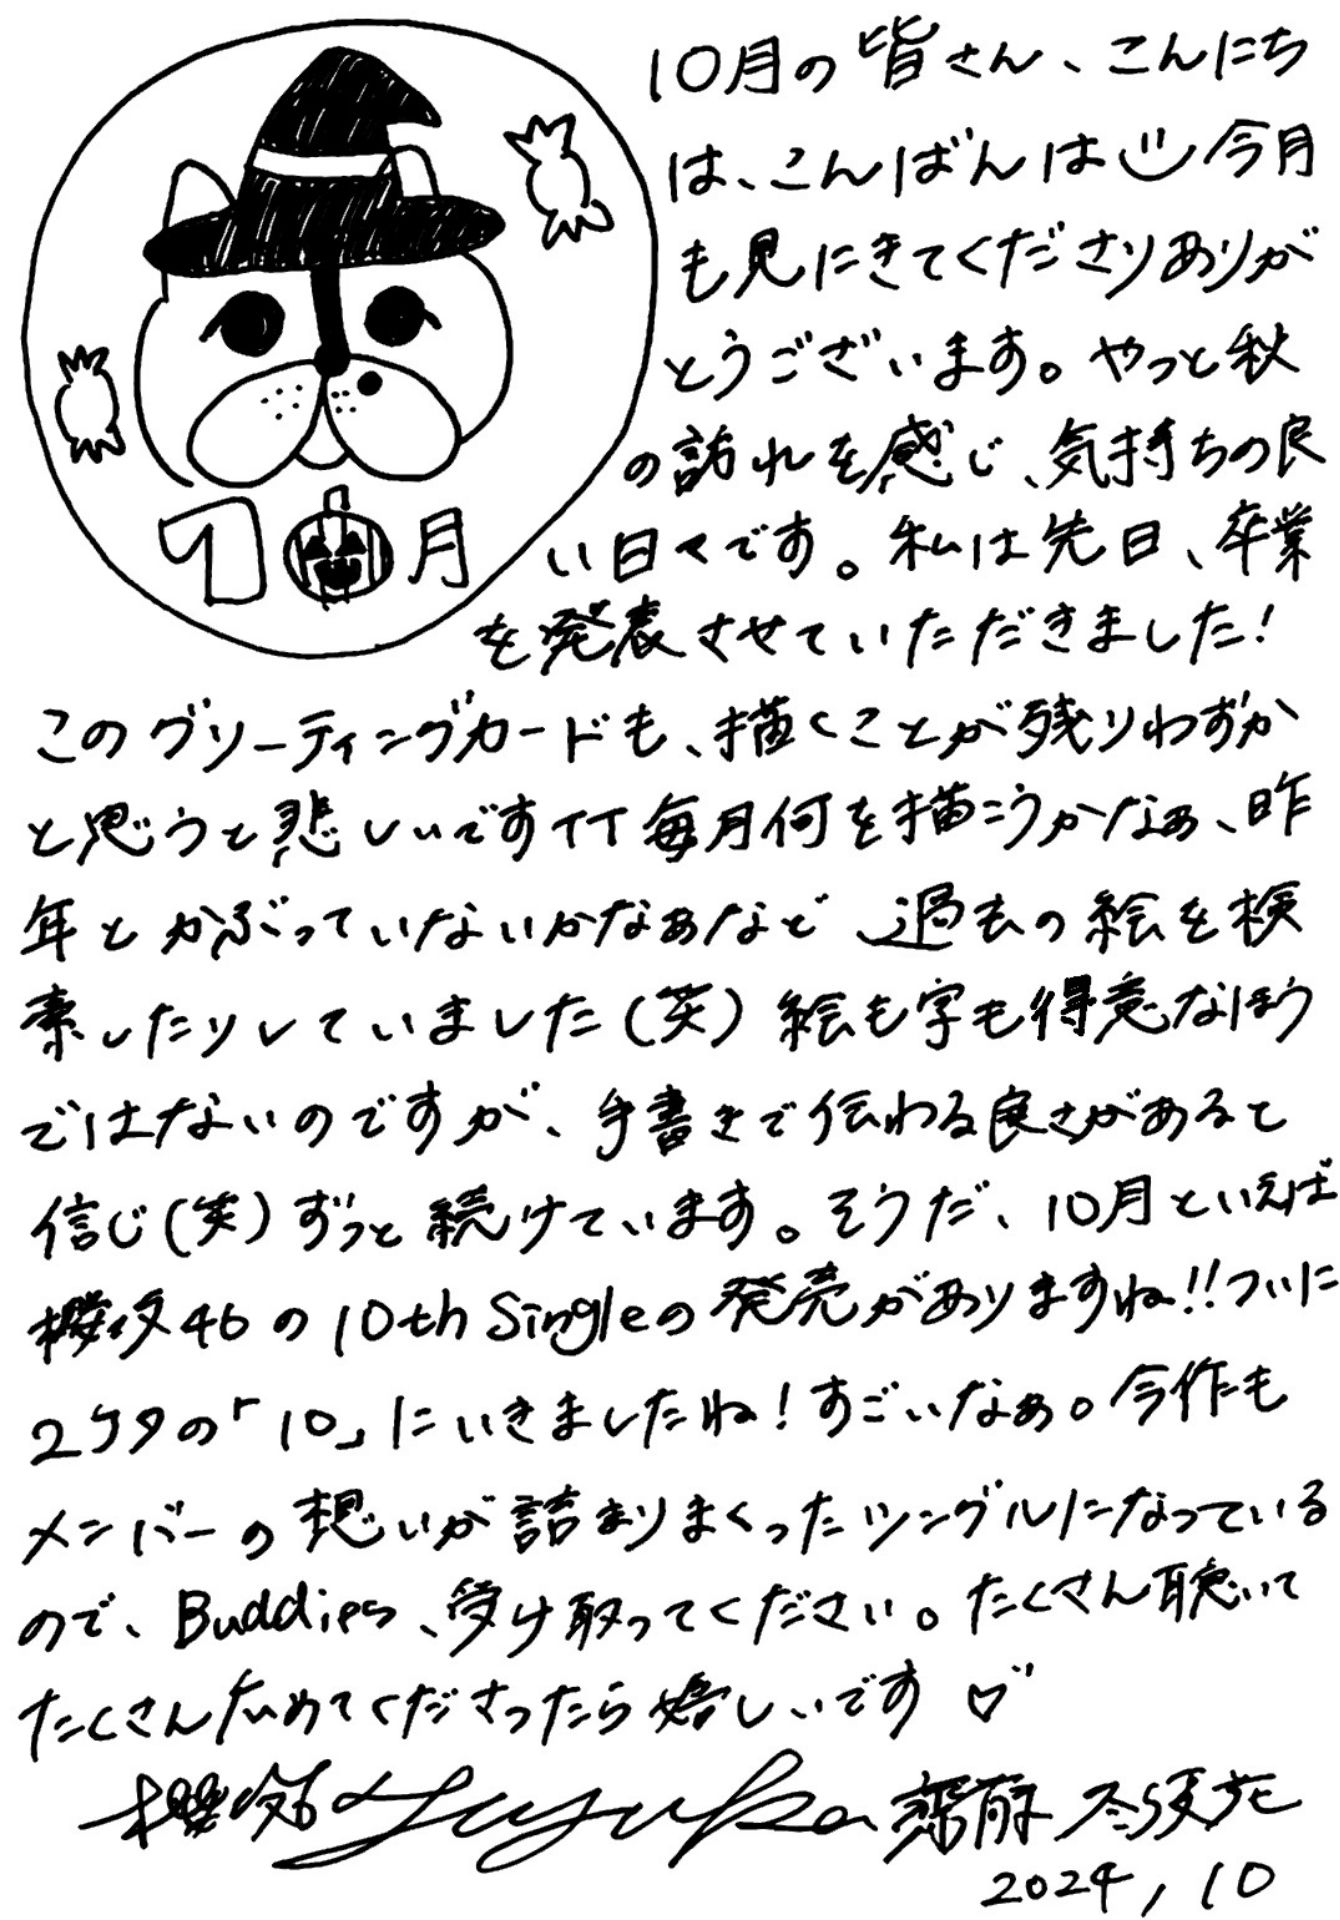 10月の皆さん、こんにち
は、こんばんは 今月
も見にきてくださりありが
とうございます。やっと秋
の訪れを感じ、気持ちの良
い日々です。私は先日、卒業
を発表させていただきました!
10月
このグリーティングカードも、描くことが残りわずか
と思うと悲しいですTT 毎月何を描こうかなぁ、昨
年とかぶっていないかなぁなど 過去の絵を検
索したりしていました(笑) 絵も字も得意なほう
ではないのですが、手書きで伝わる良さがあると
信じ(笑)ずっと続けています。そうだ、10月といえば
櫻坂46の10th Singleの発売がありますね!!ついに
2ケタの「10」にいきましたね!すごいなぁ。今作も
メンバーの想いが詰まりまくったシングルになっている
ので、Buddies、受け取ってください。たくさん聴いて
たくさん広めてくださったら嬉しいです♡
櫻坂46 Fuyuka 齋藤冬優花
2024, 10